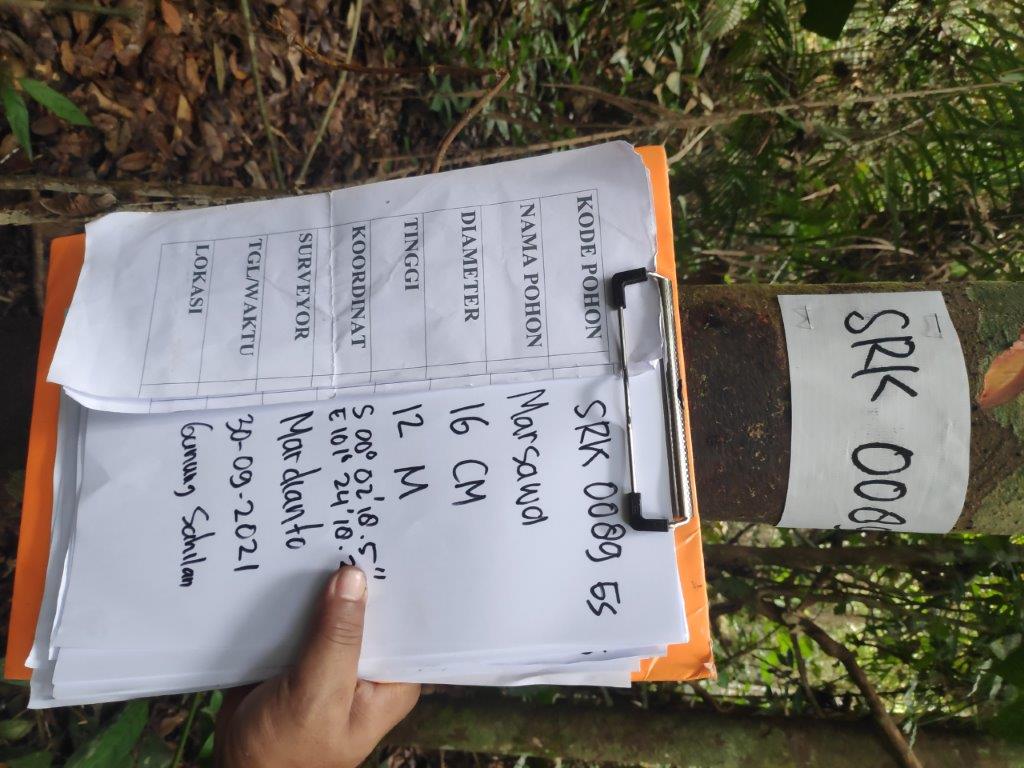 KODE POHON SRK 0089 GS
NAMA POHON Marsawa
DIAMETER 16 CM
TINGGI 12 M
KOORDINAT S 00° 02' 18.5"
E 101° 24' 18.
SURVEYOR Mardianto
TGL/WAKTU 30-09-2021
LOKASI Gunung Sahilan
SRK 008